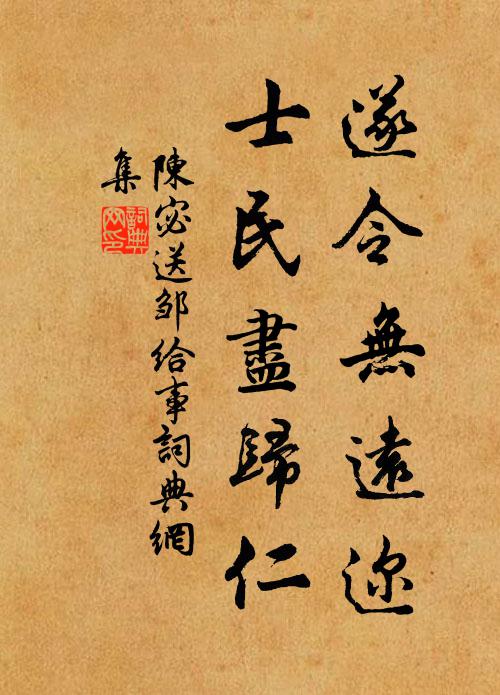 遂令無遠迩
士民盡歸仁
陳宓送邹给事詞典網
集
詞典網印